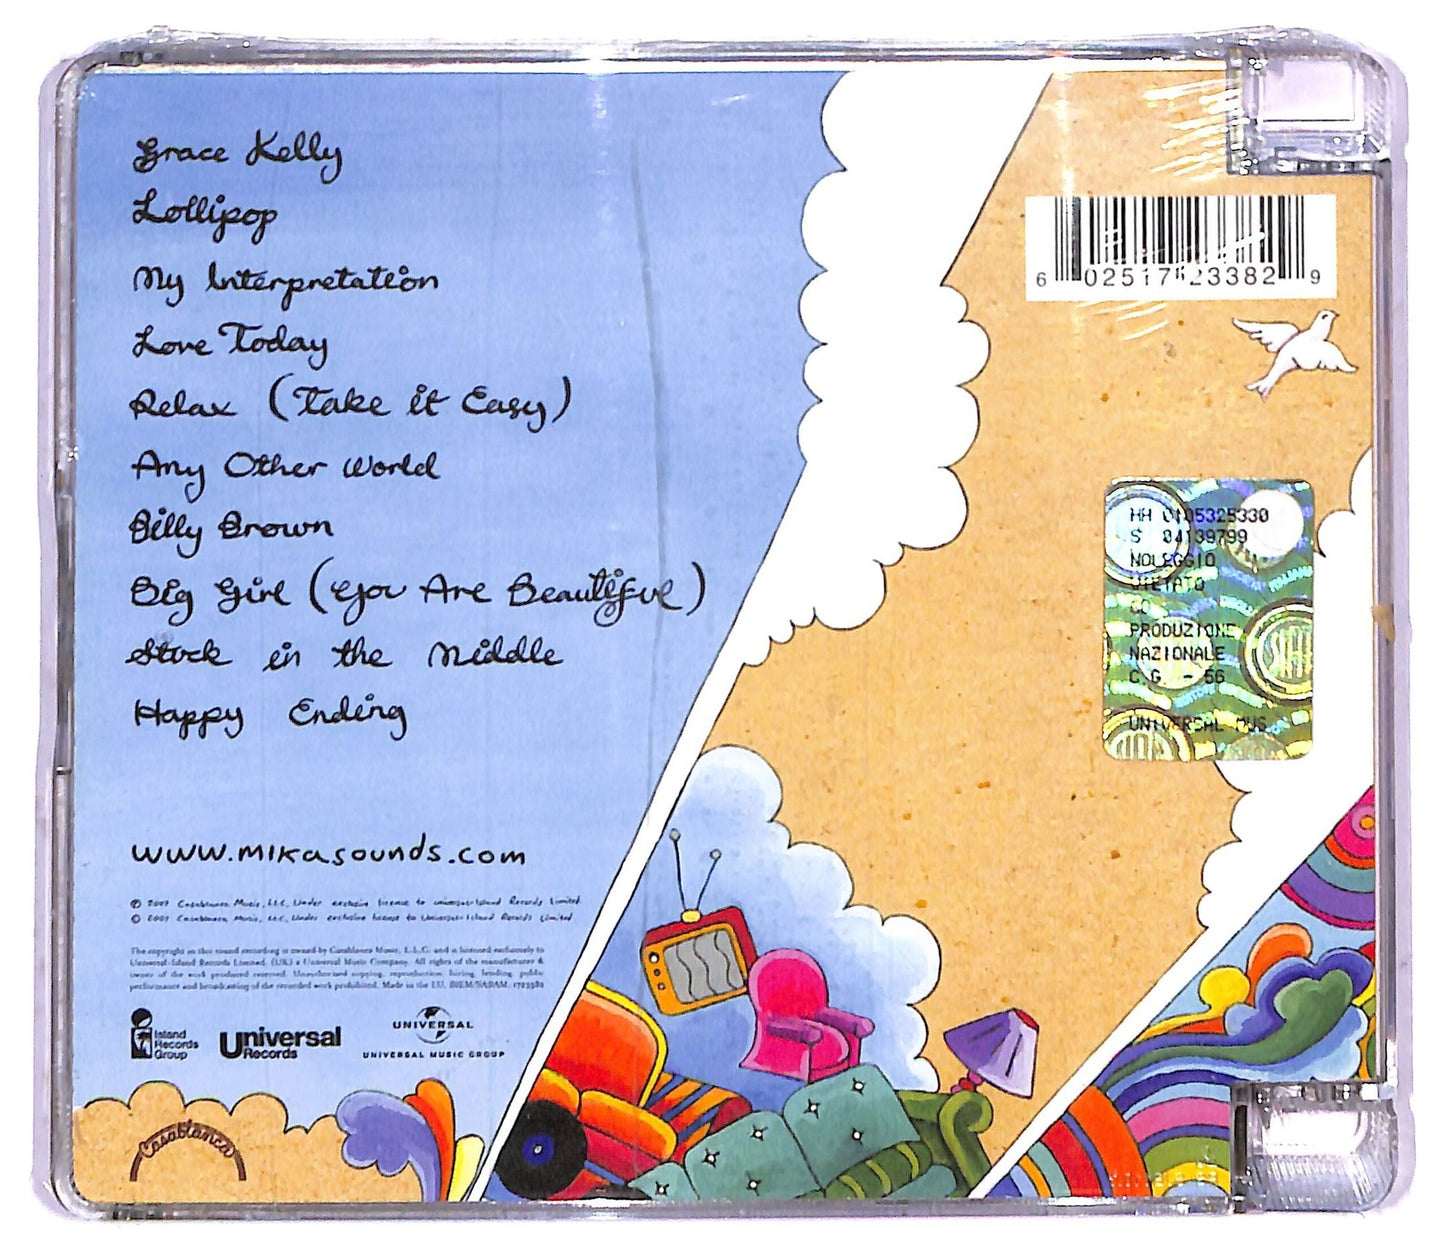 Grace Kelly
Lollipop
My Interpretation
Love Today
Relax (Take it Easy)
Any Other World
Billy Brown
Big Girl (You Are Beautiful)
Stuck in the Middle
Happy Ending
www.mikasounds.com
℗ 2007 Casablanca Music, LLC, Under exclusive license to Universal-Island Records Limited.
© 2007 Casablanca Music, LLC, Under exclusive license to Universal-Island Records Limited
The copyright in this sound recording is owned by Casablanca Music, L.L.C. and is licensed exclusively to
Universal-Island Records Limited. (UK) a Universal Music Company. All rights of the manufacturer &
owner of the work produced reserved. Unauthorised copying, reproduction, hiring, lending, public
performance and broadcasting of the recorded work prohibited. Made in the EU. BIEM/SABAM. 1723382
Island
Records
Group
Universal
Records
UNIVERSAL
UNIVERSAL MUSIC GROUP
Casablanca
6 02517 23382 9
HH 0105325330
S 04139799
NOLEGGIO
VIETATO
CD
PRODUZIONE
NAZIONALE
C.G. - 56
UNIVERSAL MUS